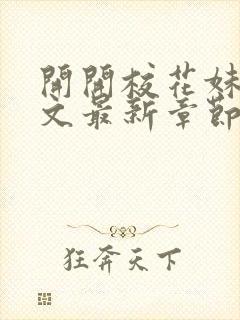 開開校花妹
文最新章節
狂奔天下